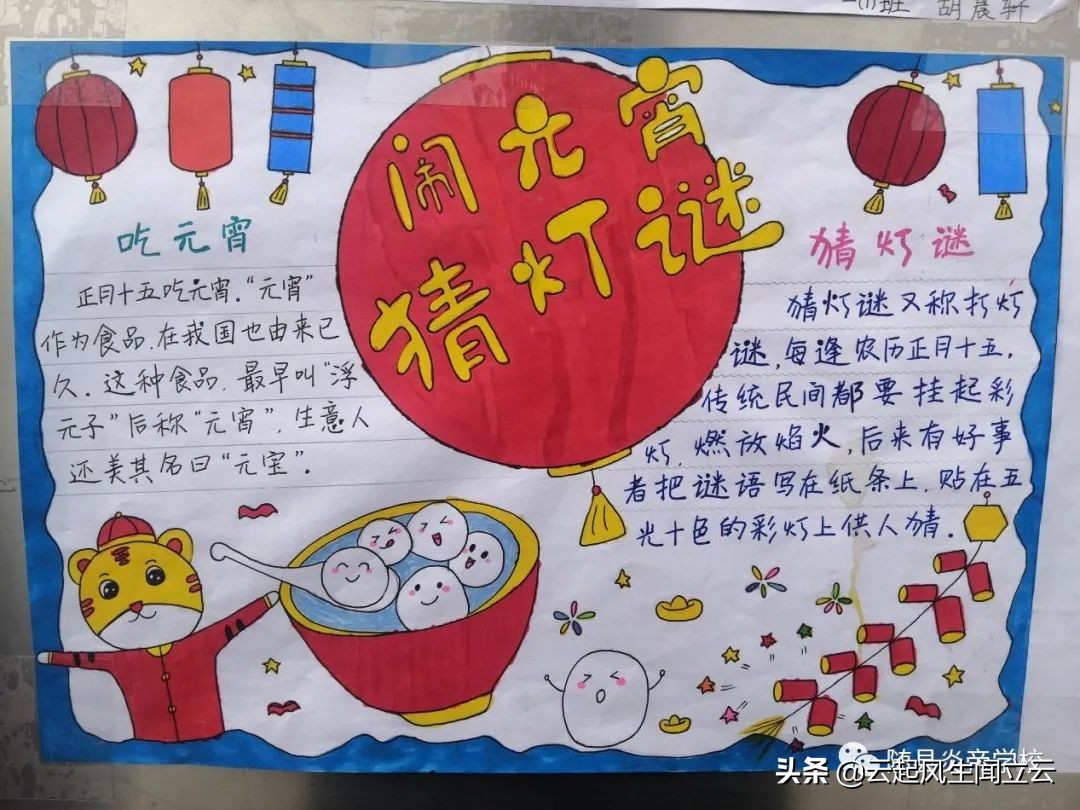 班 胡晨轩
闹元宵
猜灯谜
吃元宵
正月十五吃元宵.“元宵”
作为食品.在我国也由来已
久.这种食品.最早叫“浮
元子”后称“元宵”,生意人
还美其名曰“元宝”.
猜灯谜
猜灯谜又称打灯
谜,每逢农历正月十五,
传统民间都要挂起彩
灯.燃放焰火,后来有好事
者把谜语写在纸条上.贴在五
光十色的彩灯上供人猜.
随县炎帝学校
头条 @云起风生闻立云